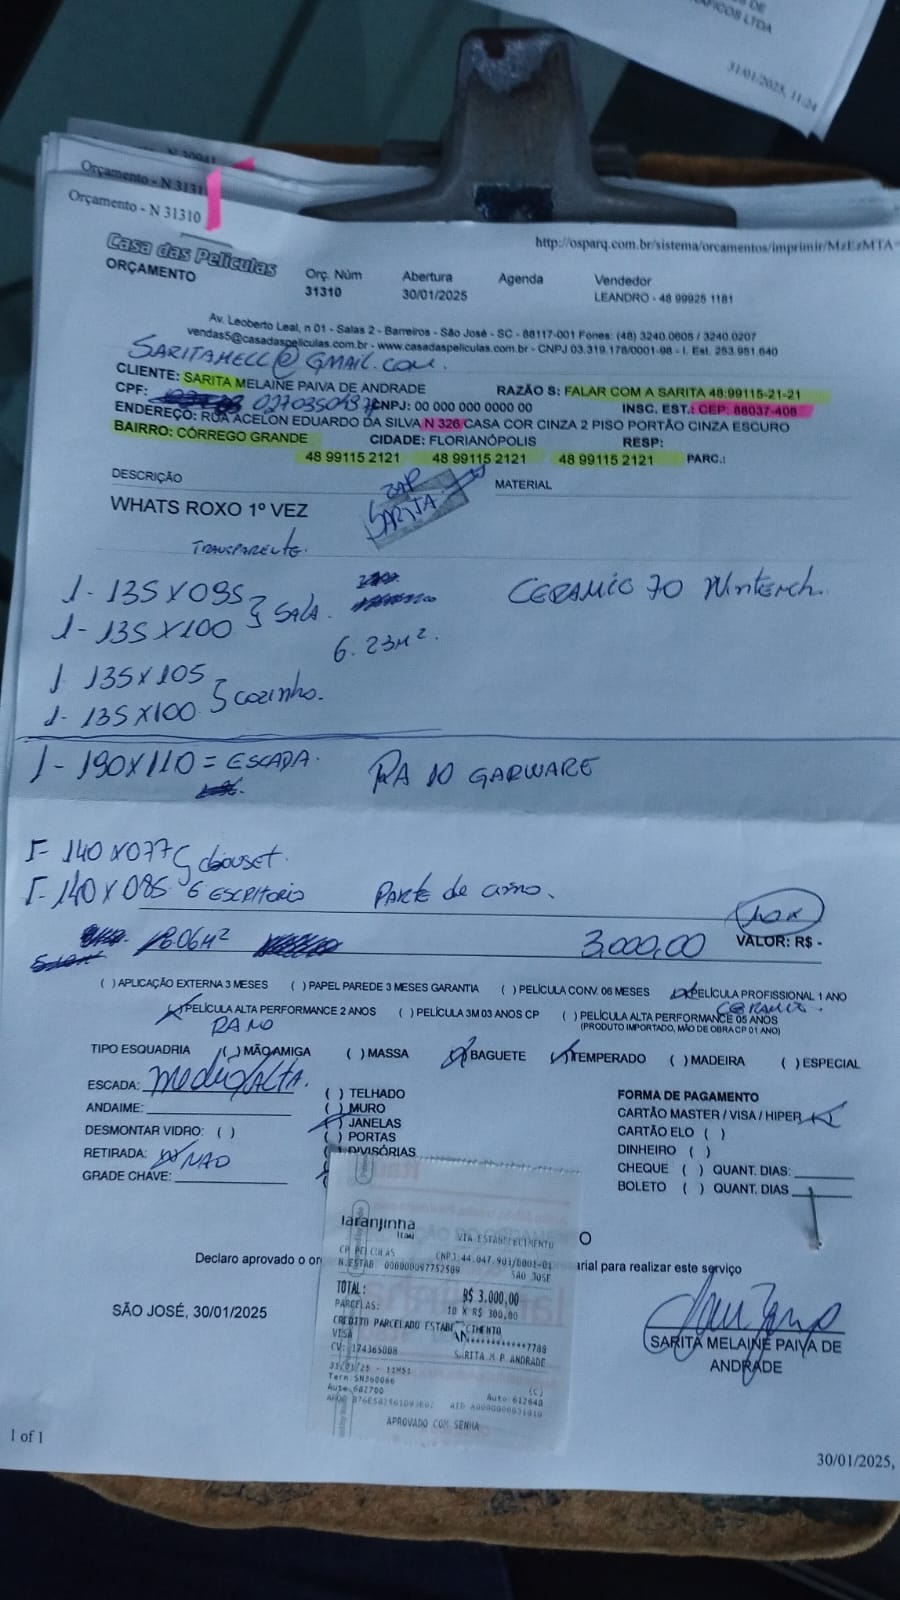 S DE
ÁFICOS LTDA
31/01/2025, 11:24
Orçamento - N 3131
Orçamento - N 31310
http://osparq.com.br/sistema/orcamentos/imprimir/MzEzMTA=
Casa das Películas
ORÇAMENTO
Orç. Núm
31310
Abertura
30/01/2025
Agenda
Vendedor
LEANDRO - 48 99925 1181
Av. Leoberto Leal, n 01 - Salas 2 - Barreiros - São José - SC - 88117-001 Fones: (48) 3240.0605 / 3240.0207
vendas5@casadaspeliculas.com.br - www.casadaspeliculas.com.br - CNPJ 03.319.178/0001-98 - I. Est. 253.951.640
SARITAMELL@GMAIL.COM.
CLIENTE: SARITA MELAINE PAIVA DE ANDRADE RAZÃO S: FALAR COM A SARITA 48:99115-21-21
CPF: CNPJ: 00 000 000 0000 00 INSC. EST.: CEP: 88037-408
ENDEREÇO: RUA ACELON EDUARDO DA SILVA N 326 CASA COR CINZA 2 PISO PORTÃO CINZA ESCURO
BAIRRO: CÓRREGO GRANDE CIDADE: FLORIANÓPOLIS RESP:
48 99115 2121 48 99115 2121 48 99115 2121 PARC.:
DESCRIÇÃO MATERIAL
ZAP
SARITA
WHATS ROXO 1º VEZ
TRANSPARENTE.
1 - 135 X 095 } SALA.
1 - 135 X 100
CERAMIC 70 Wintech.
6.23M².
1 135 X 105 } Cozinha.
1 - 135 X 100
1 - 190 X 110 = ESCADA. RA 10 GARWARE
1 - 140 X 077 closet.
1 - 140 X 085 ESCRITORIO Parte de cima.
10X
3.000,00 VALOR: R$ -
( ) APLICAÇÃO EXTERNA 3 MESES ( ) PAPEL PAREDE 3 MESES GARANTIA ( ) PELÍCULA CONV. 06 MESES PELÍCULA PROFISSIONAL 1 ANO
CERAMIC.
PELÍCULA ALTA PERFORMANCE 2 ANOS ( ) PELÍCULA 3M 03 ANOS CP ( ) PELÍCULA ALTA PERFORMANCE 05 ANOS
(PRODUTO IMPORTADO, MÃO DE OBRA CP 01 ANO)
RA 10
TIPO ESQUADRIA ( ) MÃO AMIGA ( ) MASSA BAGUETE TEMPERADO ( ) MADEIRA ( ) ESPECIAL
ESCADA: Media/ALTA.
ANDAIME:
DESMONTAR VIDRO: ( )
RETIRADA: NAO
GRADE CHAVE:
( ) TELHADO
( ) MURO
JANELAS
( ) PORTAS
DIVISÓRIAS
FORMA DE PAGAMENTO
CARTÃO MASTER / VISA / HIPER
CARTÃO ELO ( )
DINHEIRO ( )
CHEQUE ( ) QUANT. DIAS:
BOLETO ( ) QUANT. DIAS
laranjinha
Itaú
VIA ESTABELECIMENTO
CP PELICULAS CNPJ:44.047.901/0001-01
N.ESTAB 000000097752509 SAO JOSE
TOTAL: R$ 3.000,00
PARCELAS: 10 X R$ 300,00
CREDITO PARCELADO ESTABELECIMENTO
VISA ************7788
CV: 174365008 SARITA M P ANDRADE
31/01/25 - 11H51
Term SN360066 (C)
Aute 602700 Auto 612648
APROVADO COM SENHA
O
Declaro aprovado o or
arial para realizar este serviço
SÃO JOSÉ, 30/01/2025
SARITA MELAINE PAIVA DE
ANDRADE
1 of 1
30/01/2025,